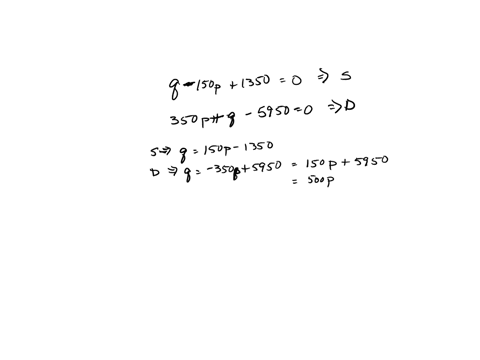 q - 150p + 1350 = 0 ⇒ S
350p + q - 5950 = 0 ⇒ D
S ⇒ q = 150p - 1350
D ⇒ q = -350p + 5950 = 150p + 5950
= 500p